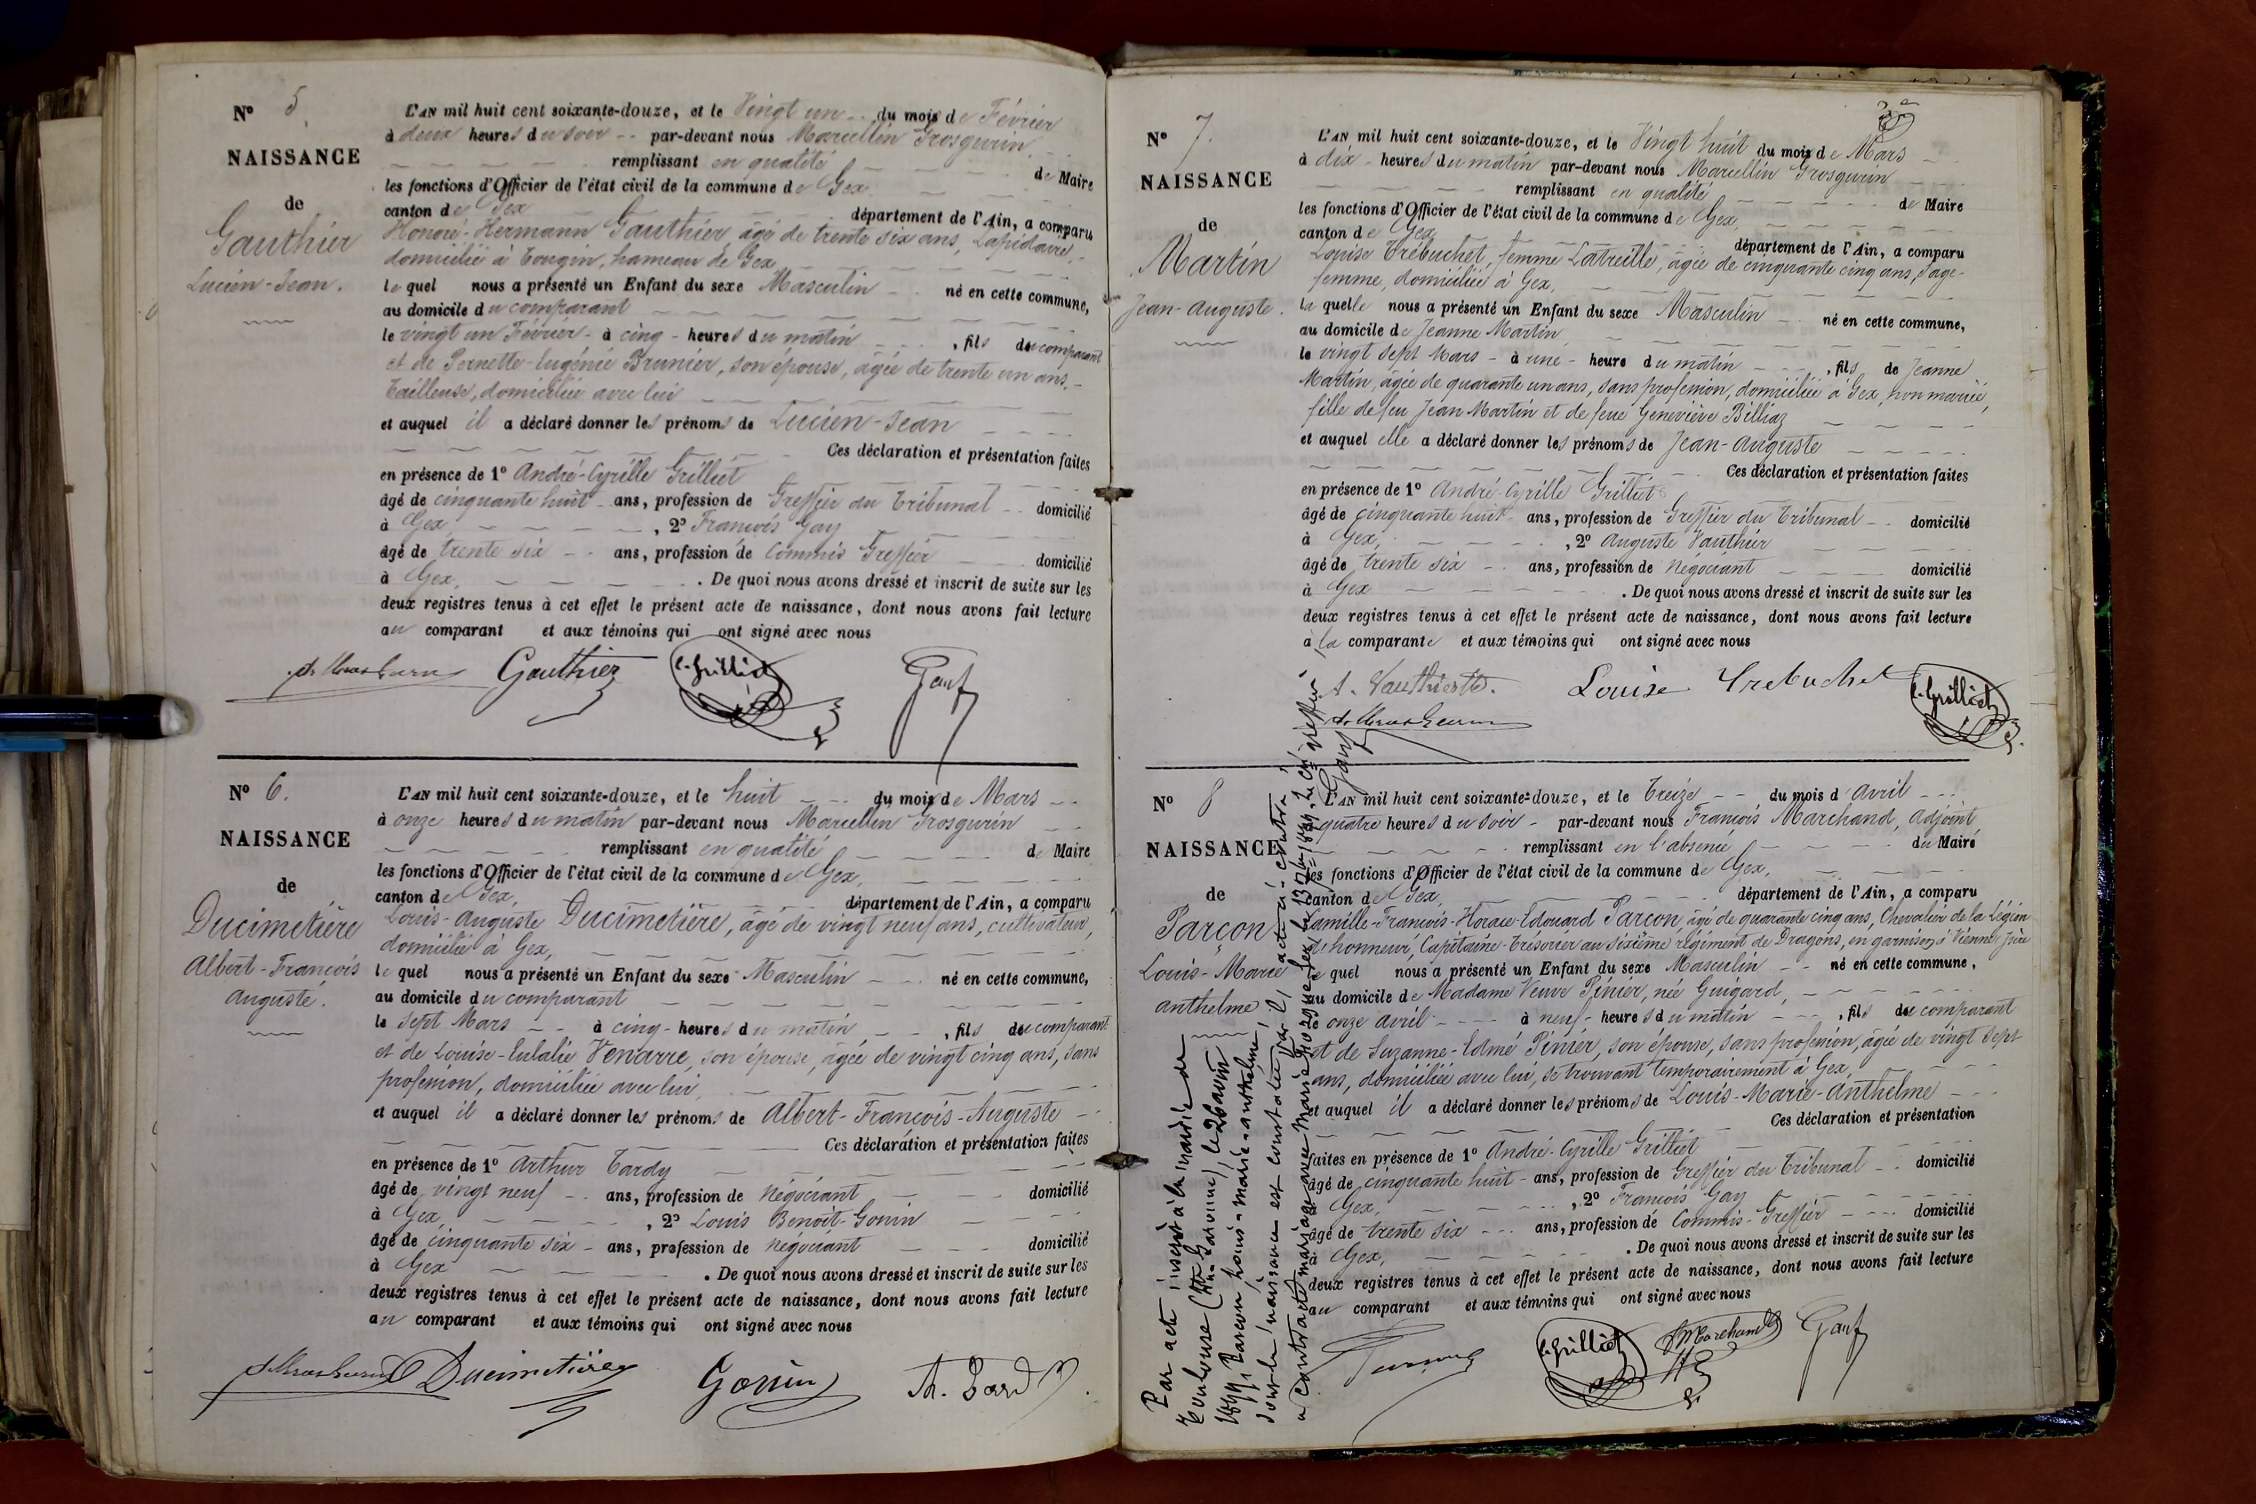 N° 5.
NAISSANCE
de
Gauthier
Lucien-Jean.
L'AN mil huit cent soixante-douze, et le Vingt un du mois de Février
à deux heures du soir par-devant nous Marcellin Grosgurin
remplissant en qualité de Maire
les fonctions d'Officier de l'état civil de la commune de Gex
canton de Gex département de l'Ain, a comparu
Honoré-Hermann Gauthier âgé de trente six ans, Lapidaire,
domicilié à Tougin, hameau de Gex
lequel nous a présenté un Enfant du sexe Masculin né en cette commune,
au domicile du comparant
le vingt un Février à cinq heures du matin , fils du comparant
et de Pernette-Eugénie Brunier, son épouse, âgée de trente un ans,
Tailleuse, domiciliée avec lui
et auquel il a déclaré donner les prénoms de Lucien-Jean
Ces déclaration et présentation faites
en présence de 1° André-Cyrille Grilliet
âgé de cinquante huit ans, profession de Greffier du Tribunal domicilié
à Gex , 2° François Gay
âgé de trente six ans, profession de Commis Greffier domicilié
à Gex. . De quoi nous avons dressé et inscrit de suite sur les
deux registres tenus à cet effet le présent acte de naissance, dont nous avons fait lecture
au comparant et aux témoins qui ont signé avec nous
Gauthier C. Grilliet Gay
N° 6.
NAISSANCE
de
Ducimetière
Albert-François
Auguste.
L'AN mil huit cent soixante-douze, et le huit du mois de Mars
à onze heures du matin par-devant nous Marcellin Grosgurin
remplissant en qualité de Maire
les fonctions d'Officier de l'état civil de la commune de Gex,
canton de Gex, département de l'Ain, a comparu
Louis-Auguste Ducimetière, âgé de vingt neuf ans, cultivateur,
domicilié à Gex,
lequel nous a présenté un Enfant du sexe Masculin né en cette commune,
au domicile du comparant
le sept Mars à cinq heures du matin , fils du comparant
et de Louise-Eulalie Venarre, son épouse, âgée de vingt cinq ans, sans
profession, domiciliée avec lui,
et auquel il a déclaré donner les prénoms de Albert-François-Auguste
Ces déclaration et présentation faites
en présence de 1° Arthur Tardy
âgé de vingt neuf ans, profession de Négociant domicilié
à Gex , 2° Louis Benoît-Gonin
âgé de cinquante six ans, profession de Négociant domicilié
à Gex . De quoi nous avons dressé et inscrit de suite sur les
deux registres tenus à cet effet le présent acte de naissance, dont nous avons fait lecture
au comparant et aux témoins qui ont signé avec nous
Ducimetière Gonin Ar. Tardy
N° 7.
NAISSANCE
de
Martin
Jean-Auguste.
L'AN mil huit cent soixante-douze, et le Vingt huit du mois de Mars
à dix heures du matin par-devant nous Marcellin Grosgurin
remplissant en qualité de Maire
les fonctions d'Officier de l'état civil de la commune de Gex
canton de Gex département de l'Ain, a comparu
Louise Trébuchet, femme Latreille, âgée de cinquante cinq ans, Sage-
femme, domiciliée à Gex,
laquelle nous a présenté un Enfant du sexe Masculin né en cette commune,
au domicile de Jeanne Martin
le vingt sept Mars à une heure du matin , fils de Jeanne
Martin, âgée de quarante un ans, sans profession, domiciliée à Gex, non mariée,
fille de feu Jean Martin et de feue Geneviève Billiaz
et auquel elle a déclaré donner les prénoms de Jean-Auguste
Ces déclaration et présentation faites
en présence de 1° André-Cyrille Grilliet
âgé de cinquante huit ans, profession de Greffier du Tribunal domicilié
à Gex, , 2° Auguste Vauthier
âgé de trente six ans, profession de Négociant domicilié
à Gex . De quoi nous avons dressé et inscrit de suite sur les
deux registres tenus à cet effet le présent acte de naissance, dont nous avons fait lecture
à la comparante et aux témoins qui ont signé avec nous
A. Vauthier Louise Trebuchet C. Grilliet
N° 8
NAISSANCE
de
Parçon
Louis-Marie
Anthelme
L'AN mil huit cent soixante-douze, et le Treize du mois d'Avril
à quatre heures du soir par-devant nous François Marchand, Adjoint
remplissant en l'absence du Maire
les fonctions d'Officier de l'état civil de la commune de Gex,
canton de Gex, département de l'Ain, a comparu
Camille-François-Horace-Edouard Parçon, âgé de quarante cinq ans, Chevalier de la Légion
d'honneur, Capitaine-Trésorier au sixième régiment de Dragons, en garnison à Vienne, Isère
lequel nous a présenté un Enfant du sexe Masculin né en cette commune,
au domicile de Madame Veuve Pinier, née Guigard,
le onze Avril à neuf heures du matin , fils du comparant
et de Suzanne-Edmé Pinier, son épouse, sans profession, âgée de vingt sept
ans, domiciliée avec lui, se trouvant temporairement à Gex,
et auquel il a déclaré donner les prénoms de Louis-Marie-Anthelme
Ces déclaration et présentation
faites en présence de 1° André-Cyrille Grilliet
âgé de cinquante huit ans, profession de Greffier du Tribunal domicilié
à Gex, , 2° François Gay
âgé de trente six ans, profession de Commis-Greffier domicilié
à Gex, . De quoi nous avons dressé et inscrit de suite sur les
deux registres tenus à cet effet le présent acte de naissance, dont nous avons fait lecture
au comparant et aux témoins qui ont signé avec nous
C. Grilliet F Marchand Gay
Par acte inséré à la mairie de
Toulouse (Hte Garonne) le 26 avril
1899, Parcon Louis-Marie-Anthelme
dont la naissance est constatée par l'acte ci-contre
a contracté mariage avec Marie
Gay